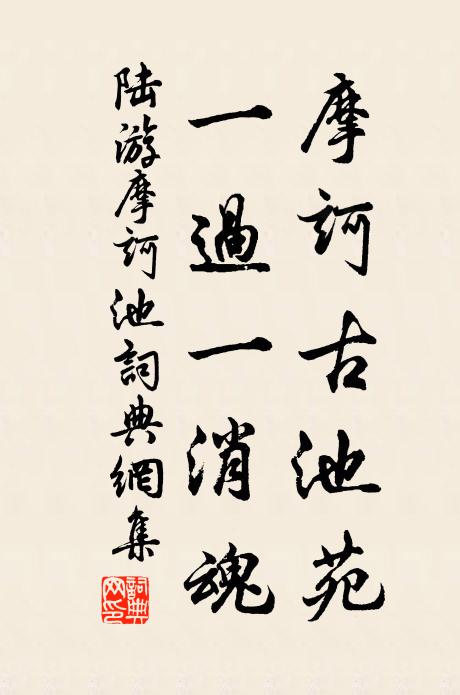 摩訶古池苑
一過一消魂
陸游摩訶池詞典網集
詞典
網印